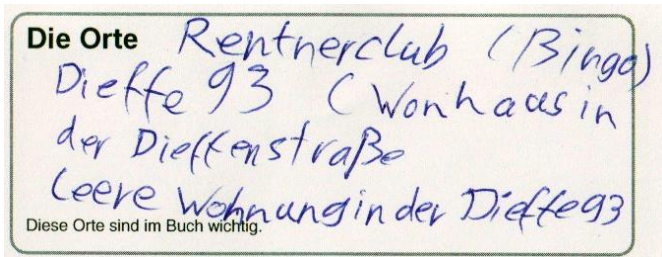 Die Orte Rentnerclub (Bingo)
Dieffe 93 (Wonhaus in
der Dieffenstraße
leere Wohnung in der Dieffe 93
Diese Orte sind im Buch wichtig.